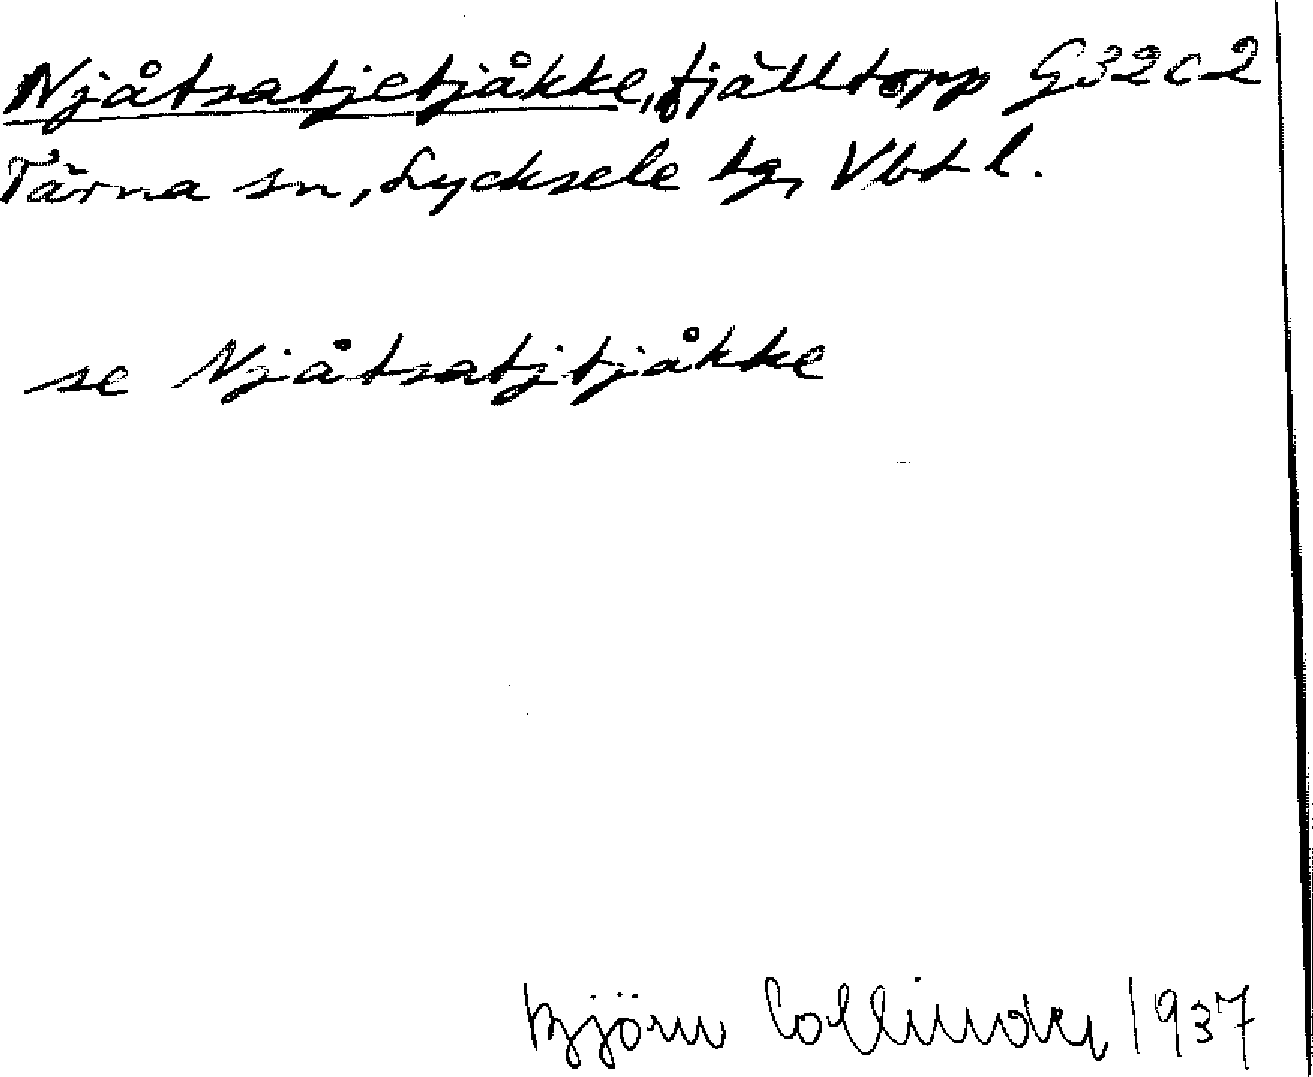 Njåtsatjetjåkke, fjälltopp G32c2
Tärna sn, Lycksele tg, Vbtl.
se Njåtsatjtjåkke
Björn Collinder 1937